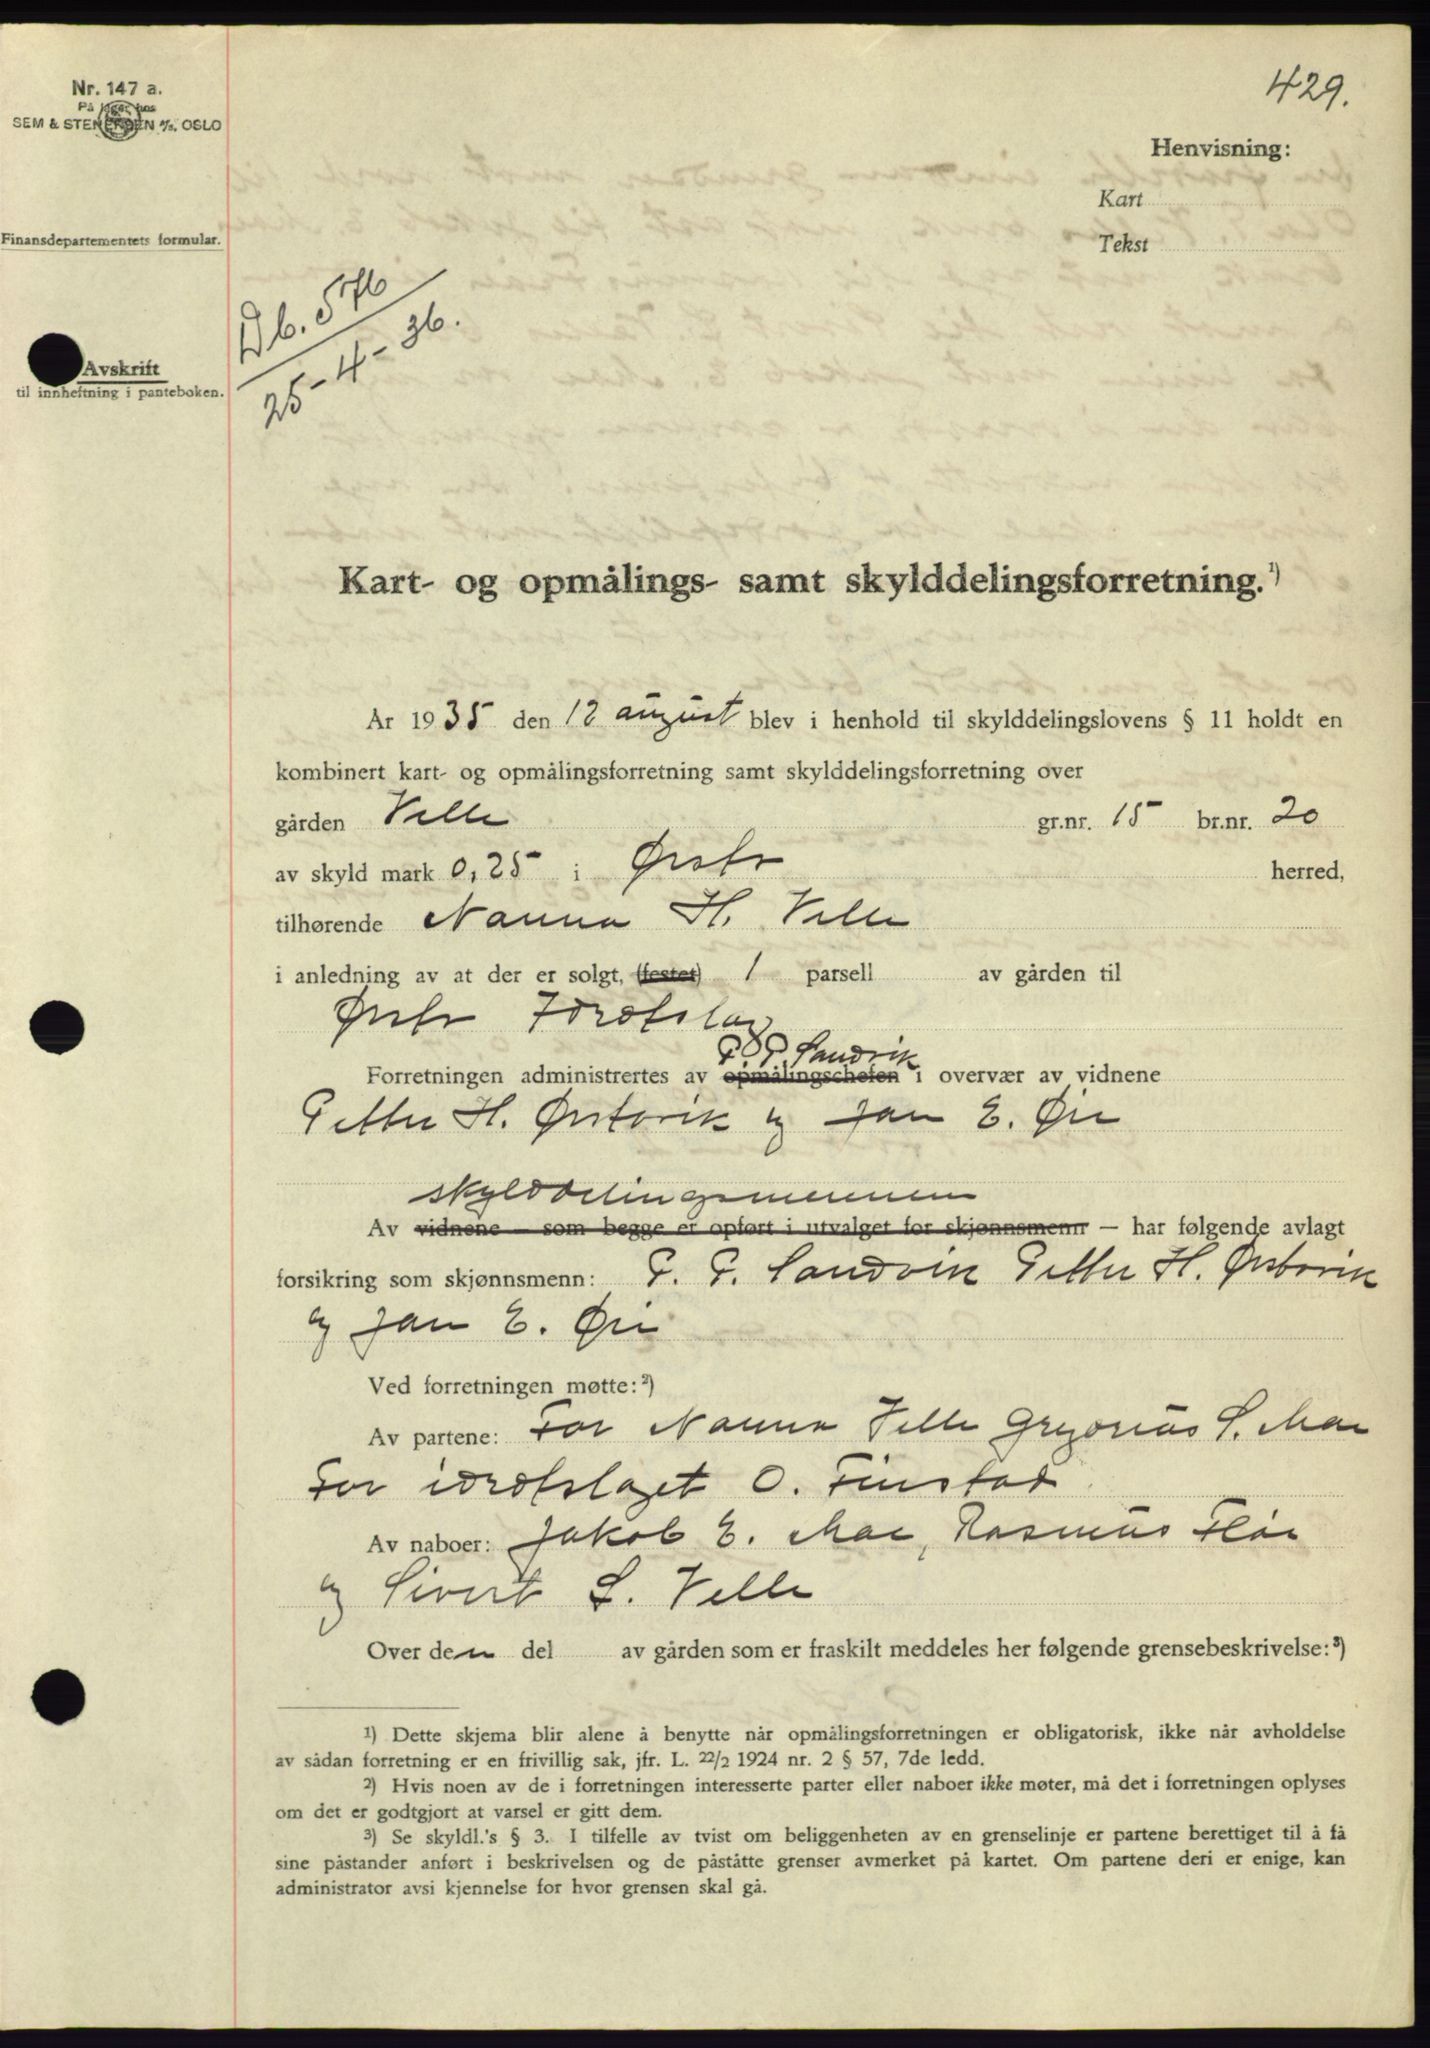 429.
Nr. 147 a.
På lager hos
SEM & STENERSEN A/S. OSLO
Henvisning:
Kart
Tekst
Finansdepartementets formular.
Db. 576
25-4-36.
Avskrift
til innheftning i panteboken.
Kart- og opmålings- samt skylddelingsforretning.¹)
År 1935 den 12 august blev i henhold til skylddelingslovens § 11 holdt en
kombinert kart- og opmålingsforretning samt skylddelingsforretning over
gården Velle gr.nr. 15 br.nr. 20
av skyld mark 0,25 i Ørsta herred,
tilhørende Nanna H. Velle
i anledning av at der er solgt, (festet) 1 parsell av gården til
Ørsta Idrotslag
P. P. Sandvik
Forretningen administrertes av opmålingschefen i overvær av vidnene
Petter H. Ørstavik og Jan E. Øie
skylddelingsmennene
Av vidnene – som begge er opført i utvalget for skjønnsmenn – har følgende avlagt
forsikring som skjønnsmenn: P. P. Sandvik Petter H. Ørstavik
og Jan E. Øie
Ved forretningen møtte:²)
Av partene: For Nanna Velle Gregorius S. Moe
For idrotslaget O. Finstad
Av naboer: Jakob E. Moe, Rasmus Fløe
og Sivert S. Velle
Over den del av gården som er fraskilt meddeles her følgende grensebeskrivelse:³)
¹) Dette skjema blir alene å benytte når opmålingsforretningen er obligatorisk, ikke når avholdelse
av sådan forretning er en frivillig sak, jfr. L. 22/2 1924 nr. 2 § 57, 7de ledd.
²) Hvis noen av de i forretningen interesserte parter eller naboer ikke møter, må det i forretningen oplyses
om det er godtgjort at varsel er gitt dem.
³) Se skyldl.'s § 3. I tilfelle av tvist om beliggenheten av en grenselinje er partene berettiget til å få
sine påstander anført i beskrivelsen og de påståtte grenser avmerket på kartet. Om partene deri er enige, kan
administrator avsi kjennelse for hvor grensen skal gå.